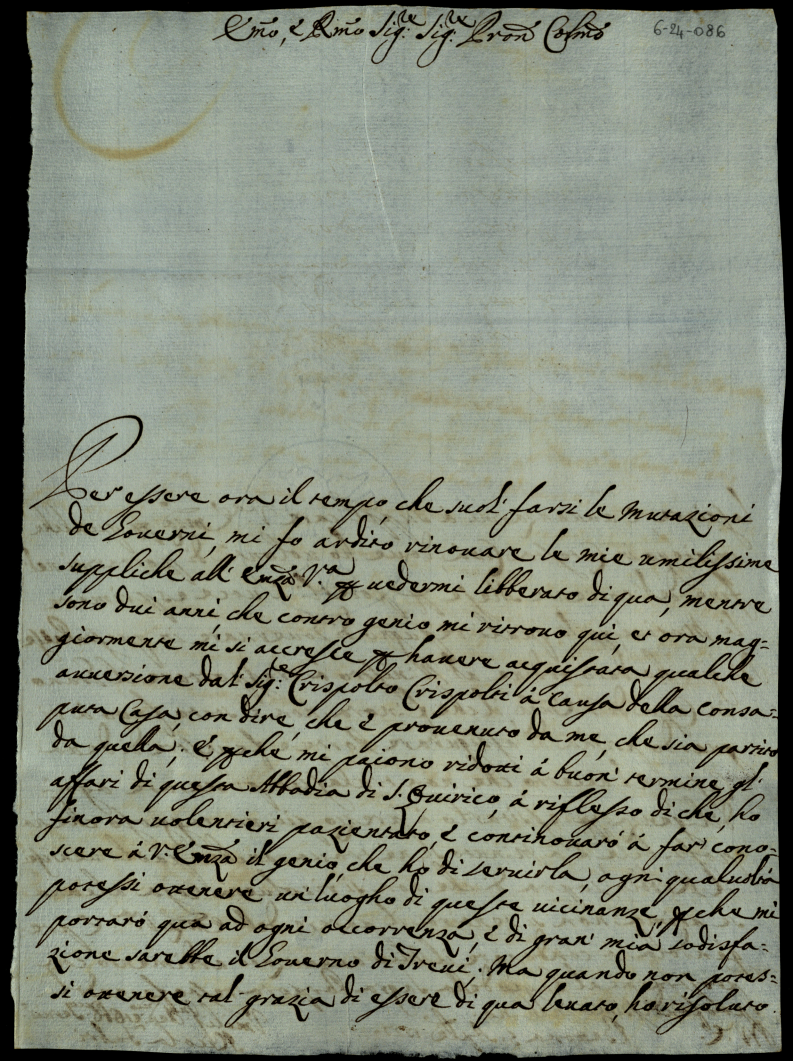 Emo, e Rmo Sig.re Sig.re Pron Colmo
6-24-086
Per essere ora il tempo, che suol farsi le Mutazioni
de Governi, mi fo ardito rinovare le mie umilissime
suppliche all' Emza V.a per vedermi libberato di qua, mentre
sono dui anni che contro genio mi ritrovo qui, et ora mag=
giormente mi si accresce per havere acquistata qualche
avversione dal Sig.re Crispolto Crispolti à causa della consa=
puta Casa, con dire, che è provenuto da me, che sia partito
da quella; E perche mi paiono ridotti à buon termine gl'
affari di questa Abbadia di S. Quirico, à riflesso di che, ho
finora volentieri pazientato, e continovarò à far cono=
scere à V. Emza il genio, che hò di servirla, ogni qualvolta
potessi ottenere un luogho di queste vicinanze, perche mi
portarò qua ad ogni occorrenza, e di gran mia sodisfa=
zione sarebbe il Governo di Trevi; Ma quando non potes=
si ottenere tal grazia di essere di qua levato, ho risoluto